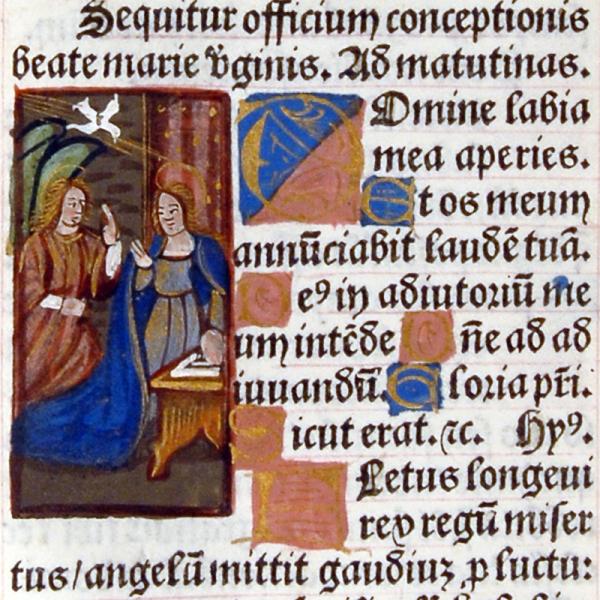 Sequitur officium conceptionis
beate marie v̄ginis. Ad matutinas.
Domine labia
mea aperies.
Et os meum
annūciabit laudē tuā.
Deꝰ in adiutoriū me
um intēde Dñe ad ad
iuuandū. Gloria pr̄i.
Sicut erat. ⁊c. Hyꝰ.
Fletus longeui
rex regū miser
tus/angelū mittit gaudiuꝫ ꝓ luctu: